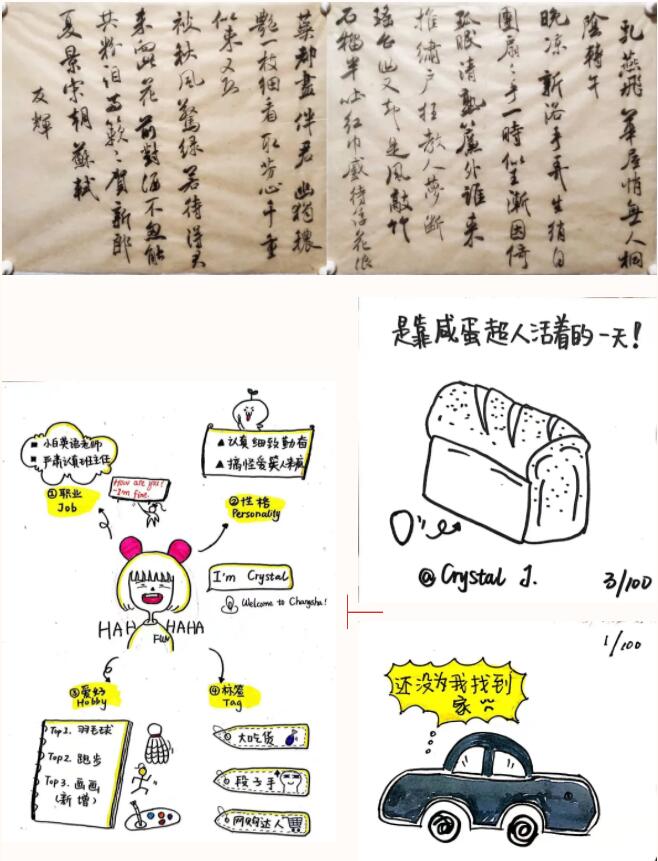 乳燕飛華屋悄無人桐
陰轉午
晚凉新浴手弄生綃白
團扇〻手一時似玉漸困倚
孤眠清熟簾外誰来
推繡户枉教人夢断
瑶台曲又却是風敲竹
石榴半吐红巾蹙待浮花浪
蕊都盡伴君幽獨穠
艷一枝細看取芳心千重
似束又恐
被秋風驚绿若待得君
来向此花前對酒不忍触
共粉泪兩簌〻賀新郎
夏景宋朝蘇軾
友輝
是靠咸蛋超人活着的一天!
@Crystal J.
3/100
小白英语老师
严肃认真班主任
①职业
Job
How are you?
-I'm fine.
认真细致勤奋
搞怪爱笑人来疯
②性格
Personality
I'm Crystal
Welcome to Changsha!
HAH HAHA
FUN
③爱好
Hobby
Top1. 羽毛球
Top2. 跑步
Top3. 画画
(新增)
④标签
Tag
大吃货
段子手
网购达人
1/100
还没为我找到
家